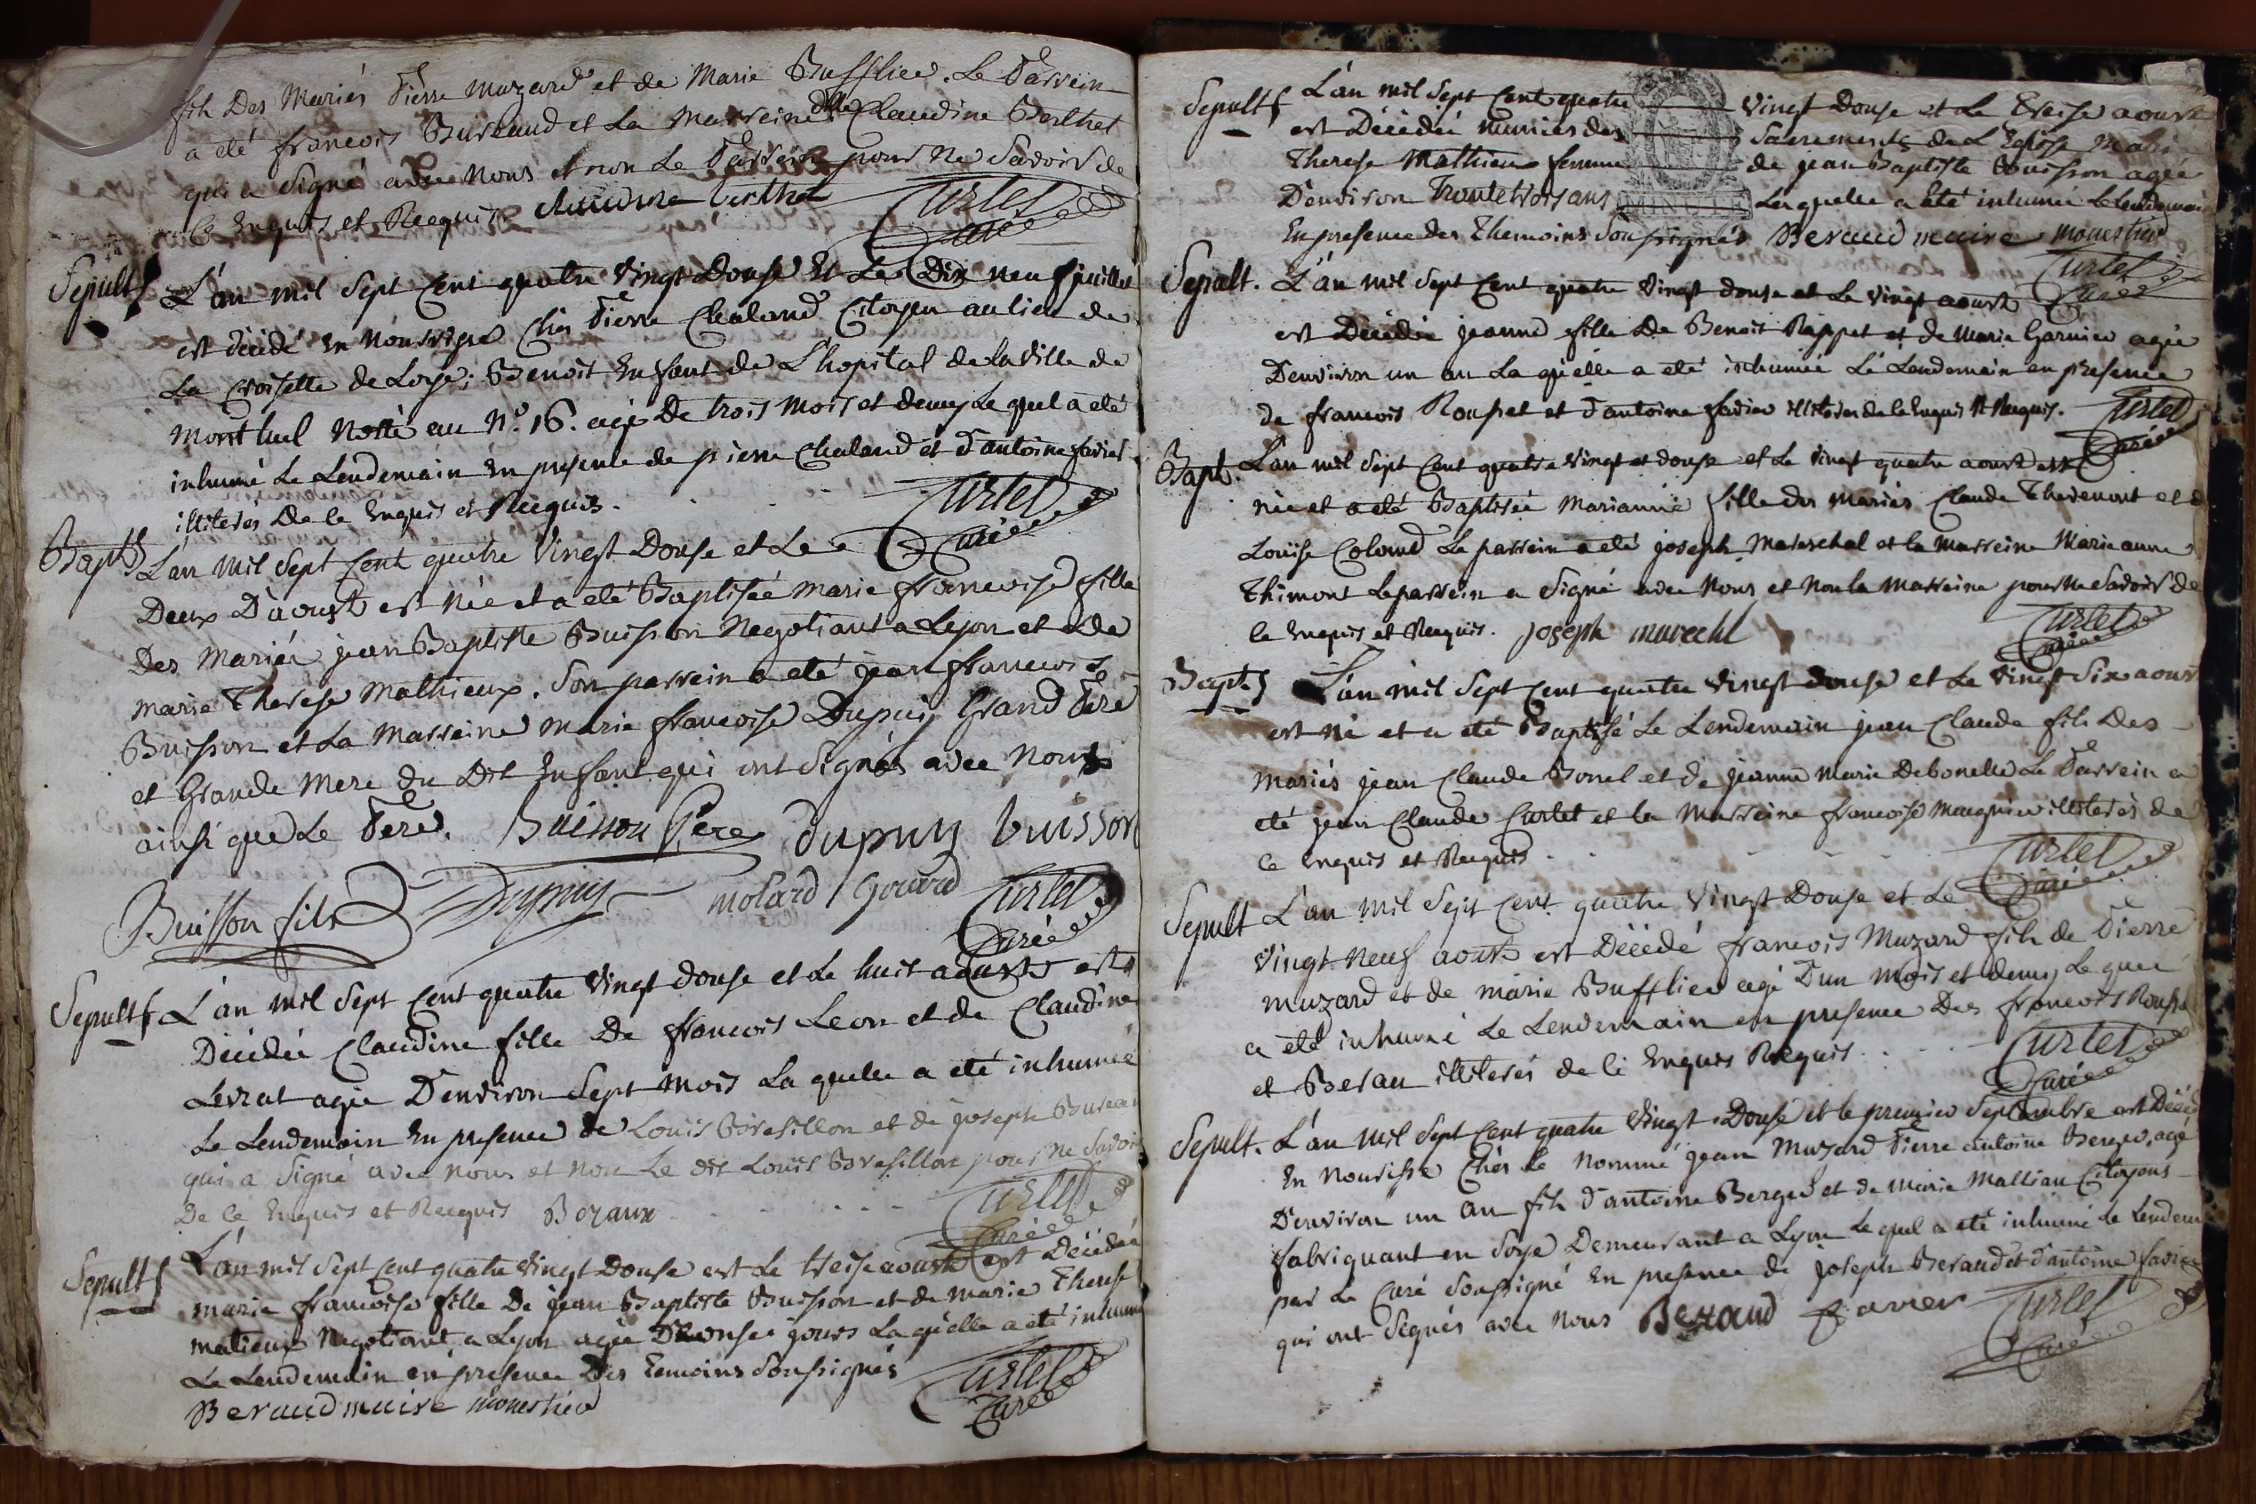 fils Des Mariés Pierre muzard et de Marie Bufflier. Le Parrein
a été francois Bureaud et La Marreine dlle Claudine Berthet
qui a signé avec nous et non Le Parrein pour Ne Savoir de
Ce Enquis et Recquis. claudine berthet Curtet
Curé
Sepult L'an mil Sept Cent quatre Vingt Douse Et Le Dix neuf juillet
est décédé en Nourrisse Chés Pierre Chaland Citoyen au lieu de
La Croisette de Loye; Benoit Enfant de L'hopital de la Ville de
Montluel Notté au N.º 16. agé De trois Mois et demy Le quel a été
inhumé Le Lendemain en presence de pierre Chaland et d'antoine favier
illiterés De ce Enquis et Recquis. Curtet
Curé
Bapt L'an mil Sept Cent quatre Vingt Douse et Le
Deux D'aoust est Née et a été Baptisée marie francoise fille
Des Mariés jean Baptiste Buisson Negotiant a Lyon et De
marie Therese Mathieux. Son parrein a été jean francois
Buisson et La Marreine Marie francoise Dupuis Grand Pere
et Grande Mere du Dit Enfant qui ont Signés avec Nous
ainsi que Le Pere. Buisson Pere dupuy buisson
Buisson fils Dupuy molard Gourd Curtet
Curé
Sepult L'an mil Sept Cent quatre Vingt Douse et Le huit aoust est
Décédée Claudine fille De francois Leon et de Claudine
Levrat agée D'environ Sept Mois La quelle a été inhumée
Le Lendemain En presence de Louis Bresillon et de joseph Bureau
qui a Signé avec nous et Non Le dit Louis Bresillon pour Ne Savoir
De ce Enquis et Recquis Boyaux Curtet
Curé
Sepult L'an mil Sept Cent quatre Vingt Douse et Le treise aoust est Décédée
marie francoise fille De jean Baptiste Buisson et de marie Therese
matieux Negotiant a Lyon agée D'onse jours La quelle a été inhumée
Le Lendemain en presence Des temoins Soussignés Curtet
Beraud maire monestier Curé
Sepult L'an mil Sept Cent quatre Vingt Douse et Le treise aoust
est Décédée munies des Sacrements de L'Eglise Marie
Therese Mathieux femme de jean Baptiste Buisson agée
D'environ Trente trois ans MINUTE La quelle a été inhumée Le lendemain
En presence des Themoins Soussignés Beraud maire monestier
Curtet
Curé
Sepult. L'an mil Sept Cent quatre Vingt douse et Le vingt aoust
est Décédée jeanne fille De Benoit Rappet et de Marie Garnier agée
D'environ un an La quelle a été inhumée Le Lendemain en presence
de francois Rousset et d'antoine favier illiterés de ce Enquis et Recquis. Curtet
Curé
Bapt. L'an mil Sept Cent quatre Vingt et douse et Le Vingt quatre aoust est
née et a été Baptisée Marianne fille des Mariés Claude Thevenont et de
Louise Coland Le parrein a été joseph Mareschal et la Marreine Marie anne
Thimont Le parrein a Signé avec Nous et Non la Marreine pour Ne Savoir de
ce Enquis et Recquis. joseph marechl Curtet
Curé
Bapt. L'an mil Sept Cent quatre Vingt douse et Le Vingt Six aoust
est Né et a été Baptisé Le Lendemain jean Claude fils Des
Mariés jean Claude Bonel et de jeanne Marie Debonelle Le Parrein a
été jean Claude Curtet et la Marreine francoise Maugnier illiterés de
Ce Enquis et Recquis. Curtet
Curé
Sepult L'an mil Sept Cent quatre Vingt Douse et Le
Vingt Neuf aoust est Décédé francois Muzard fils de Pierre
muzard et de marie Bufflier agé D'un Mois et demy Le quel
a été inhumé Le Lendemain en presence Des francois Rousset
et Berau illiterés de ce Enquis Recquis. Curtet
Curé
Sepult. L'an mil Sept Cent quatre Vingt Douse et le premier Septembre est Décédé
En Nourisse Chés le Nommé jean Muzard Pierre antoine Berger, agé
D'environ un an fils d'antoine Berger et de Marie Mallian Citoyens
fabriquant en Soye Demeurant a Lyon Le quel a été inhumé le Lendemain
par Le Curé Soussigné En presence de joseph Beraud et d'antoine favier
qui ont Signés avec Nous Beraud favier Curtet
Curé